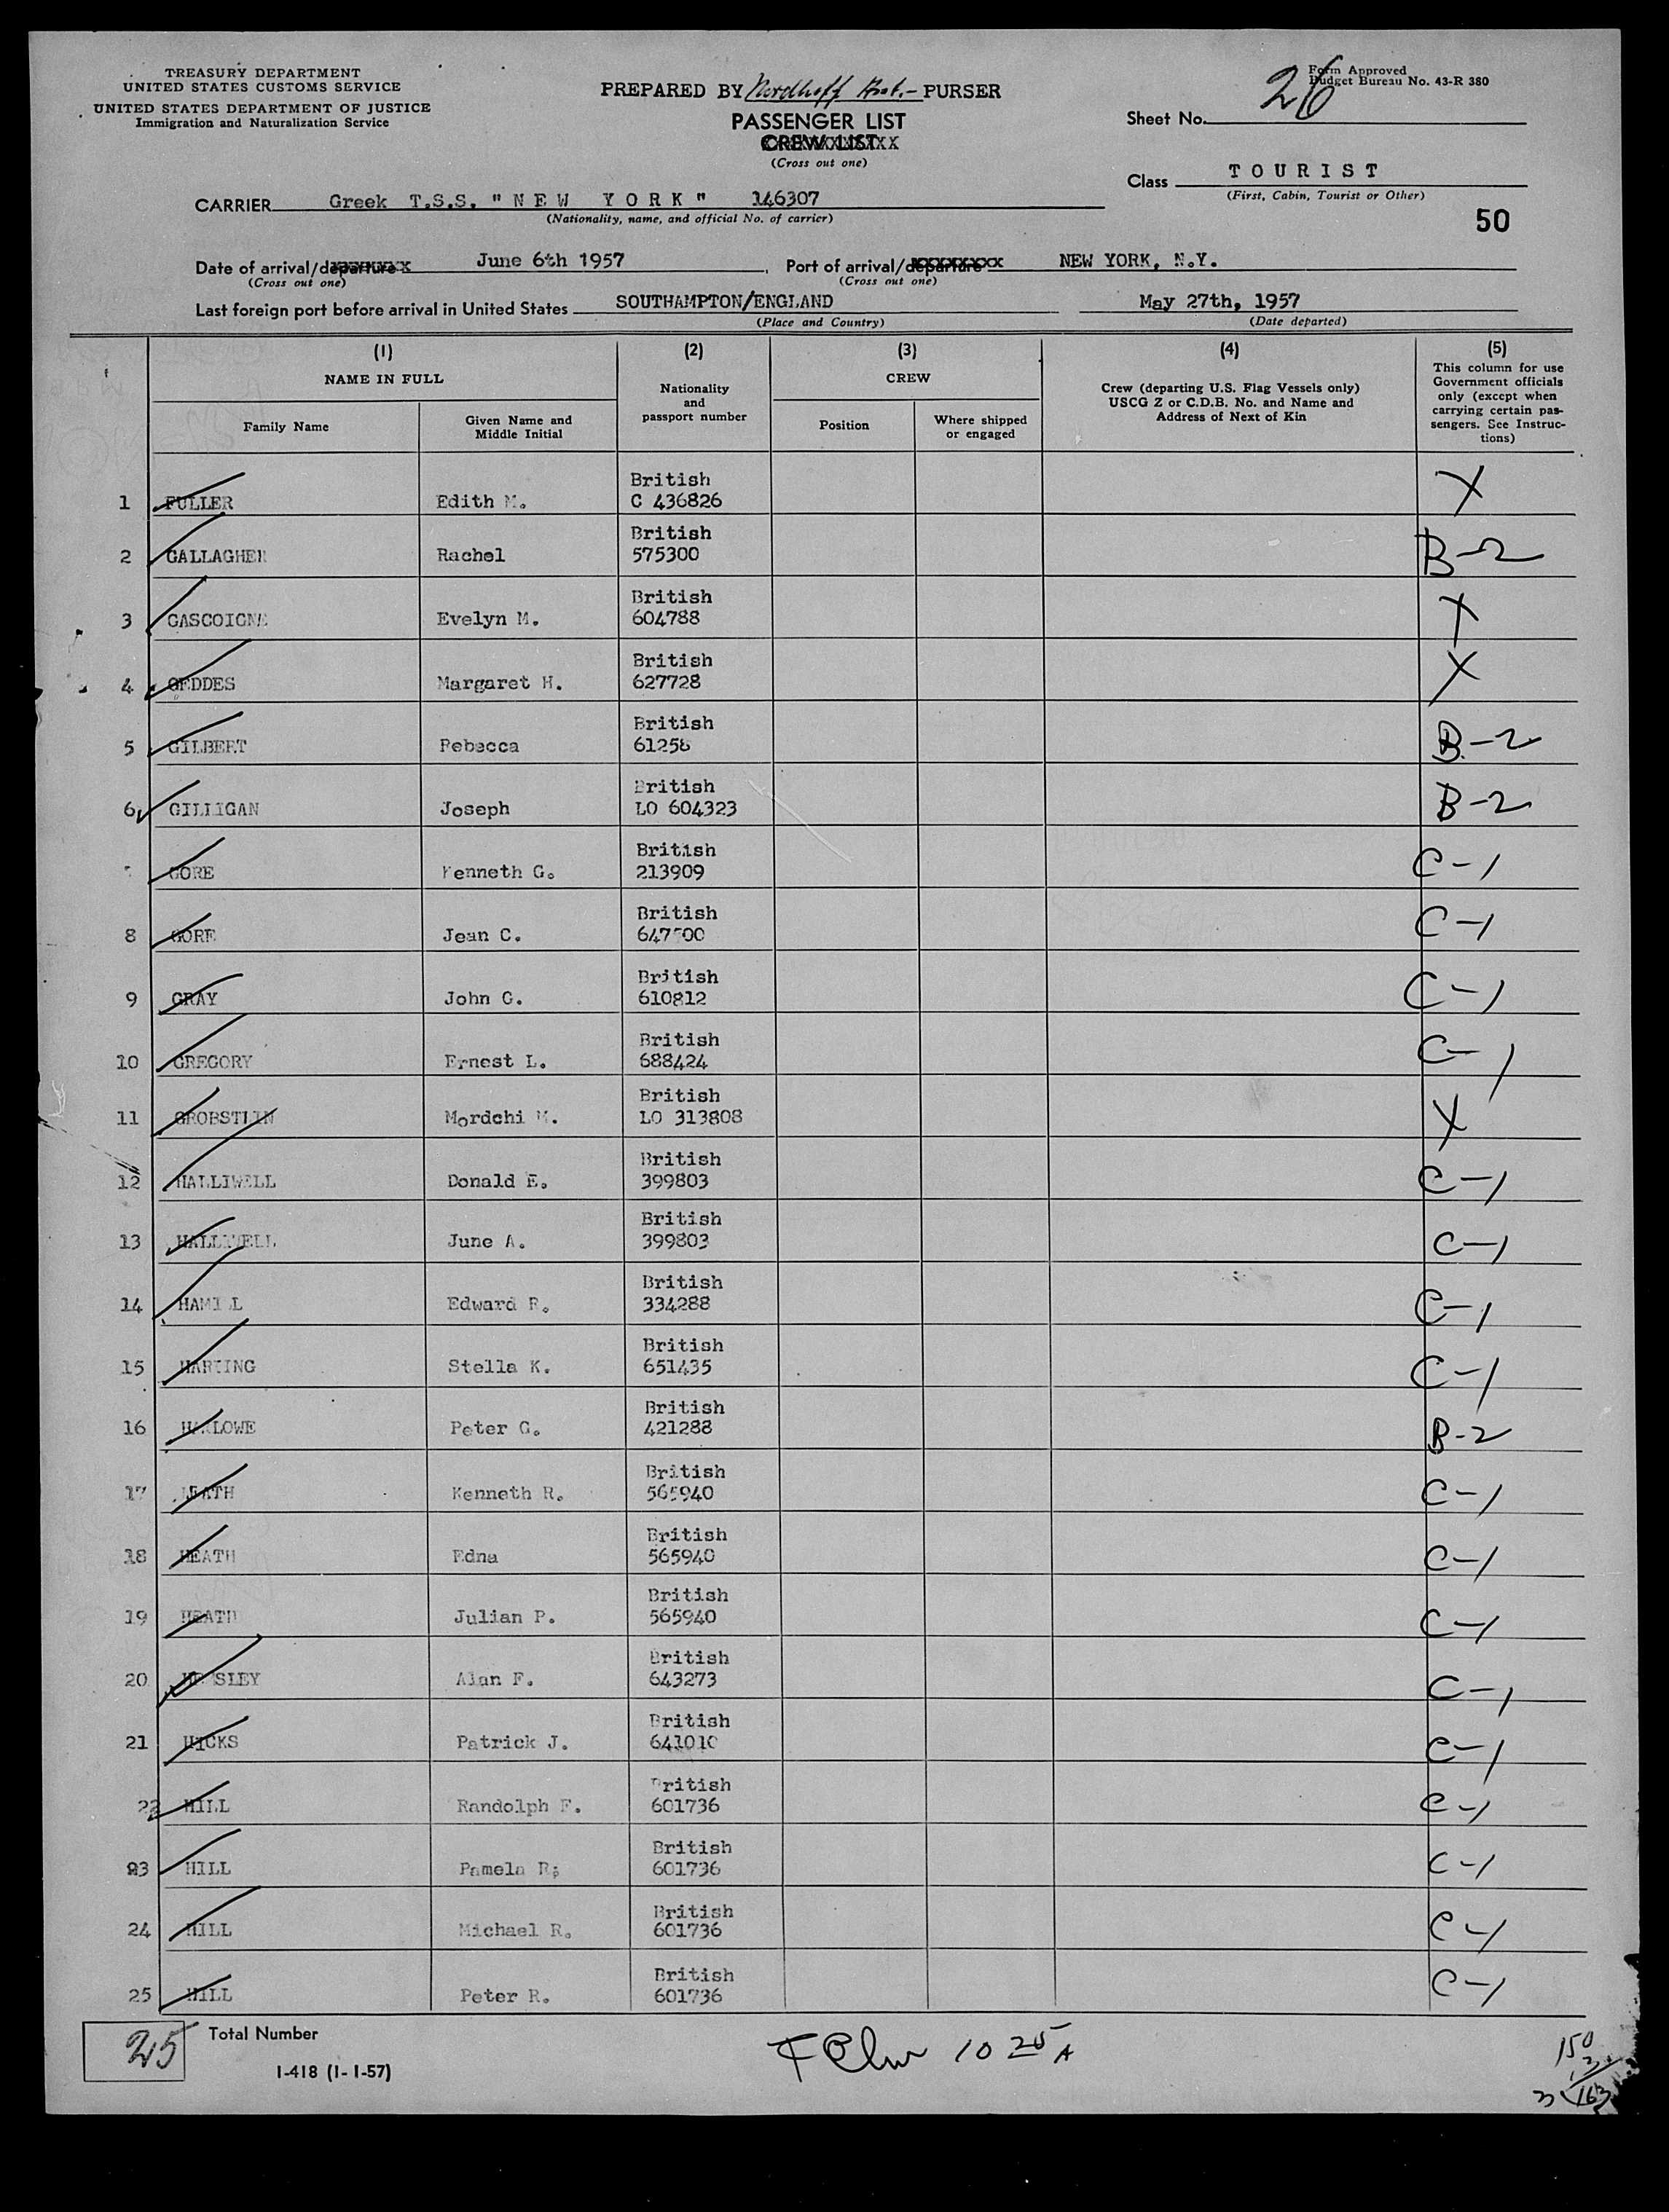 TREASURY DEPARTMENT
UNITED STATES CUSTOMS SERVICE
UNITED STATES DEPARTMENT OF JUSTICE
Immigration and Naturalization Service
PREPARED BY PURSER
PASSENGER LIST
CREW LIST
(Cross out one)
Form Approved
Budget Bureau No. 43-R 380
Sheet No. 26
Class TOURIST
(First, Cabin, Tourist or Other)
50
CARRIER Greek T.S.S. "NEW YORK" 146307
(Nationality, name, and official No. of carrier)
Date of arrival/departure June 6th 1957, Port of arrival/departure NEW YORK, N.Y.
(Cross out one) (Cross out one)
Last foreign port before arrival in United States SOUTHAMPTON/ENGLAND May 27th, 1957
(Place and Country) (Date departed)
(1) NAME IN FULL
Family Name
Given Name and Middle Initial
(2) Nationality and passport number
(3) CREW
Position
Where shipped or engaged
(4) Crew (departing U.S. Flag Vessels only) USCG Z or C.D.B. No. and Name and Address of Next of Kin
(5) This column for use Government officials only (except when carrying certain passengers. See Instructions)
1 FULLER Edith M. British C 436826 X
2 GALLAGHER Rachel British 575300 B-2
3 GASCOIGNE Evelyn M. British 604788 X
4 GEDDES Margaret H. British 627728 X
5 GILBERT Rebecca British B-2
6 GILLIGAN Joseph British LO 604323 B-2
GORE Kenneth G. British 213909 C-1
8 GORE Jean C. British C-1
9 GRAY John G. British 610812 C-1
10 GREGORY Ernest L. British 688424 C-1
11 GROBSTEIN Mordchi M. British LO 313808 X
12 HALLIWELL Donald E. British 399803 C-1
13 HALLIWELL June A. British 399803 C-1
14 HAMILL Edward R. British 334288 C-1
15 Stella K. British 651435 C-1
16 HARLOWE Peter G. British 421288 B-2
17 HEATH Kenneth R. British 565940 C-1
18 HEATH Edna British 565940 C-1
19 HEATH Julian P. British 565940 C-1
20 Alan F. British 643273 C-1
21 HICKS Patrick J. British 641010 C-1
22 HILL Randolph F. British 601736 C-1
23 HILL Pamela R; British 601736 C-1
24 HILL Michael R. British 601736 C-1
25 HILL Peter R. British 601736 C-1
25 Total Number
I-418 (1-1-57)
10 25 A
150
3
163